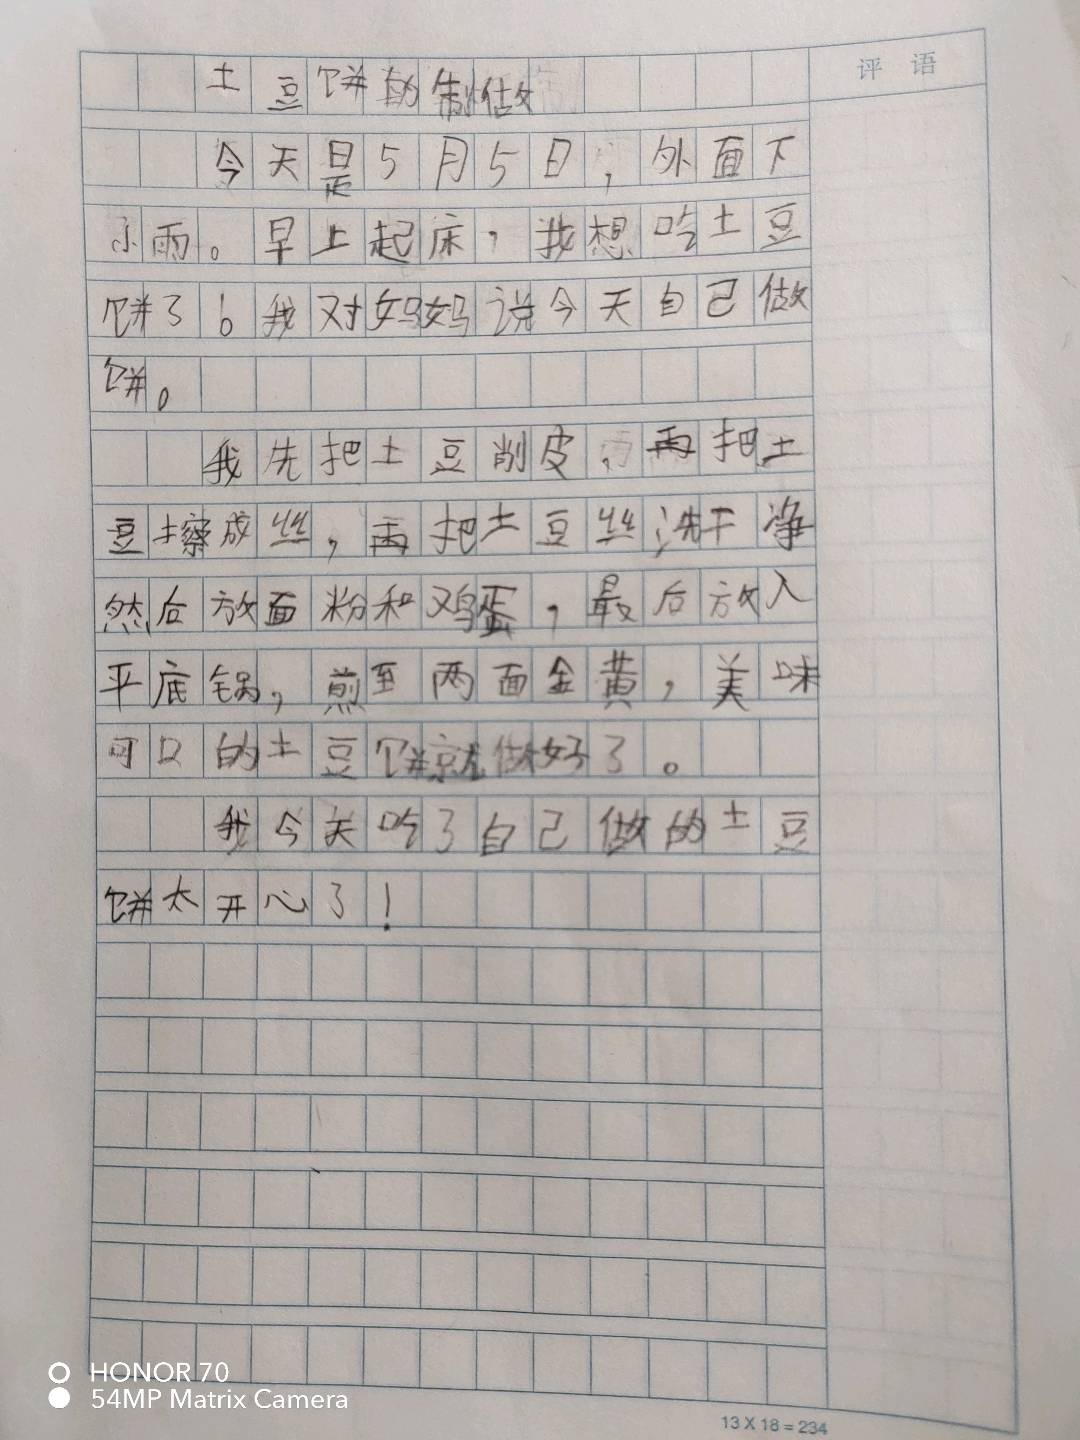 评语
土豆饼的制做
今天是5月5日，外面下
小雨。早上起床，我想吃土豆
饼了！我对妈妈说今天自己做
饼。
我先把土豆削皮，再把土
豆擦成丝，再把土豆丝洗干净
然后放面粉和鸡蛋，最后放入
平底锅，煎至两面金黄，美味
可口的土豆饼就做好了。
我今天吃了自己做的土豆
饼太开心了！
HONOR 70
54MP Matrix Camera
13 X 18 = 234